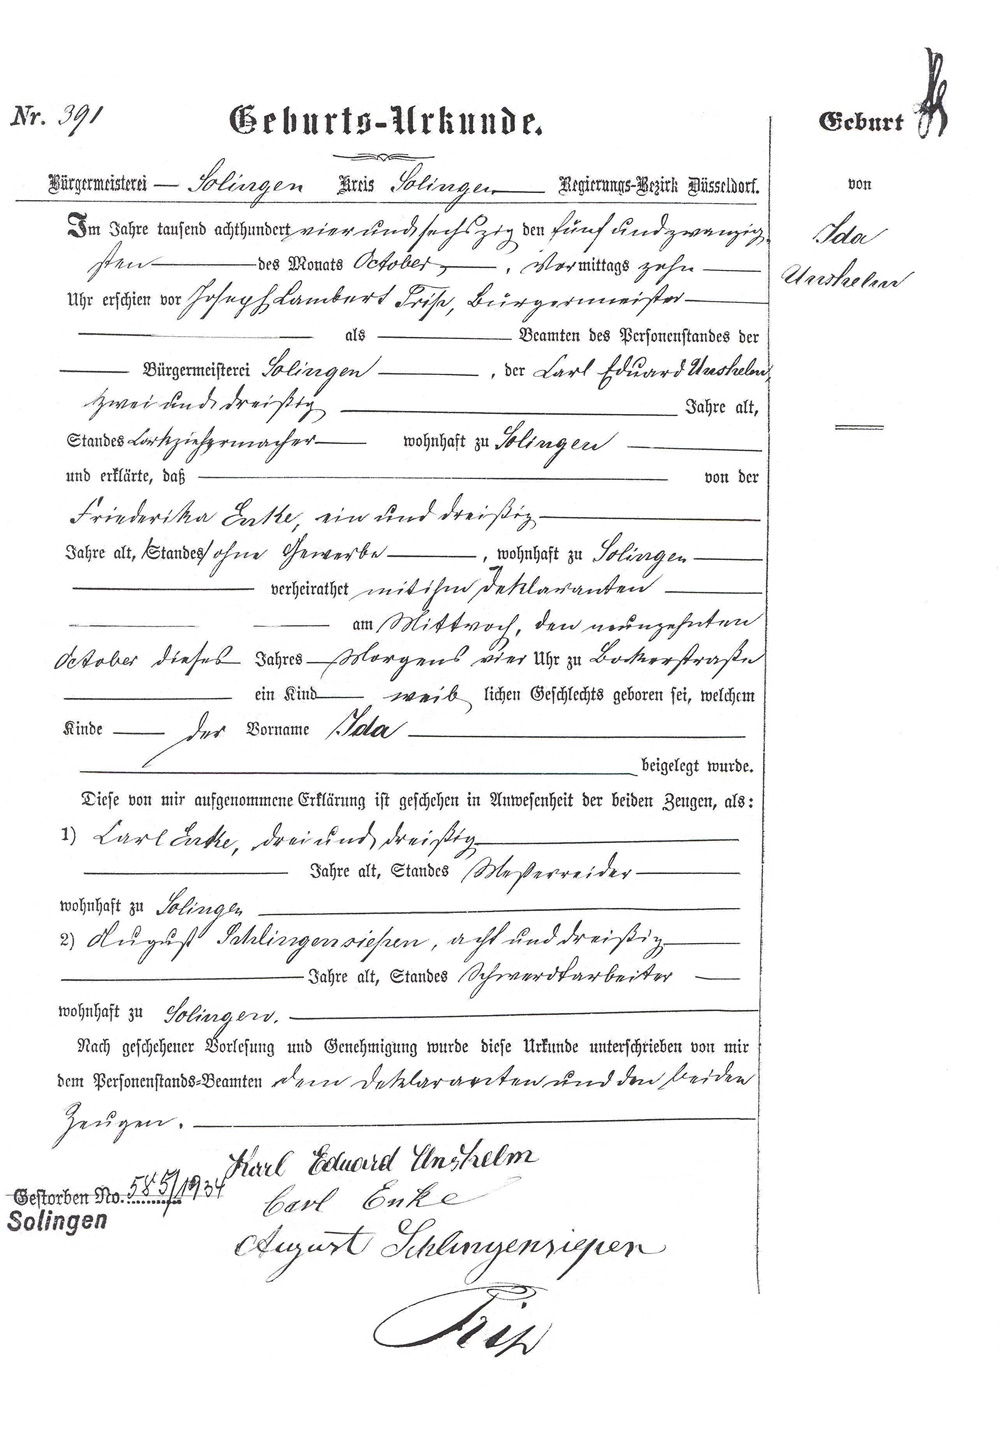 Nr. 391
Geburts-Urkunde.
Geburt
Bürgermeisterei Solingen Kreis Solingen Regierungs-Bezirk Düsseldorf.
von
Im Jahre tausend achthundert vier und sechszig den fünf und zwanzig
Ida
sten des Monats October, Vormittags zehn
Unshelm
Uhr erschien vor Joseph Lambert Trip, Bürgermeister
als Beamten des Personenstandes der
Bürgermeisterei Solingen, der Carl Eduard Unshelm,
zwei und dreißig Jahre alt,
Standes Korkziehermacher wohnhaft zu Solingen
und erklärte, daß von der
Friederika Enke, ein und dreißig
Jahre alt, /Standes/ ohne Gewerbe, wohnhaft zu Solingen
verheirathet mit ihm Deklaranten
am Mittwoch, den neunzehnten
October dieses Jahres Morgens vier Uhr zu Bockerstraße
ein Kind weib lichen Geschlechts geboren sei, welchem
Kinde der Vorname Ida
beigelegt wurde.
Diese von mir aufgenommene Erklärung ist geschehen in Anwesenheit der beiden Zeugen, als:
1) Carl Enke, drei und dreißig
Jahre alt, Standes Messerreider
wohnhaft zu Solingen
2) August Schlingensiepen, acht und dreißig
Jahre alt, Standes Schwerdtarbeiter
wohnhaft zu Solingen.
Nach geschehener Vorlesung und Genehmigung wurde diese Urkunde unterschrieben von mir
dem Personenstands-Beamten dem Deklaranten und den beiden
Zeugen.
Karl Eduard Unshelm
Gestorben No. 585/1934
Carl Enke
Solingen
August Schlingensiepen
Trip